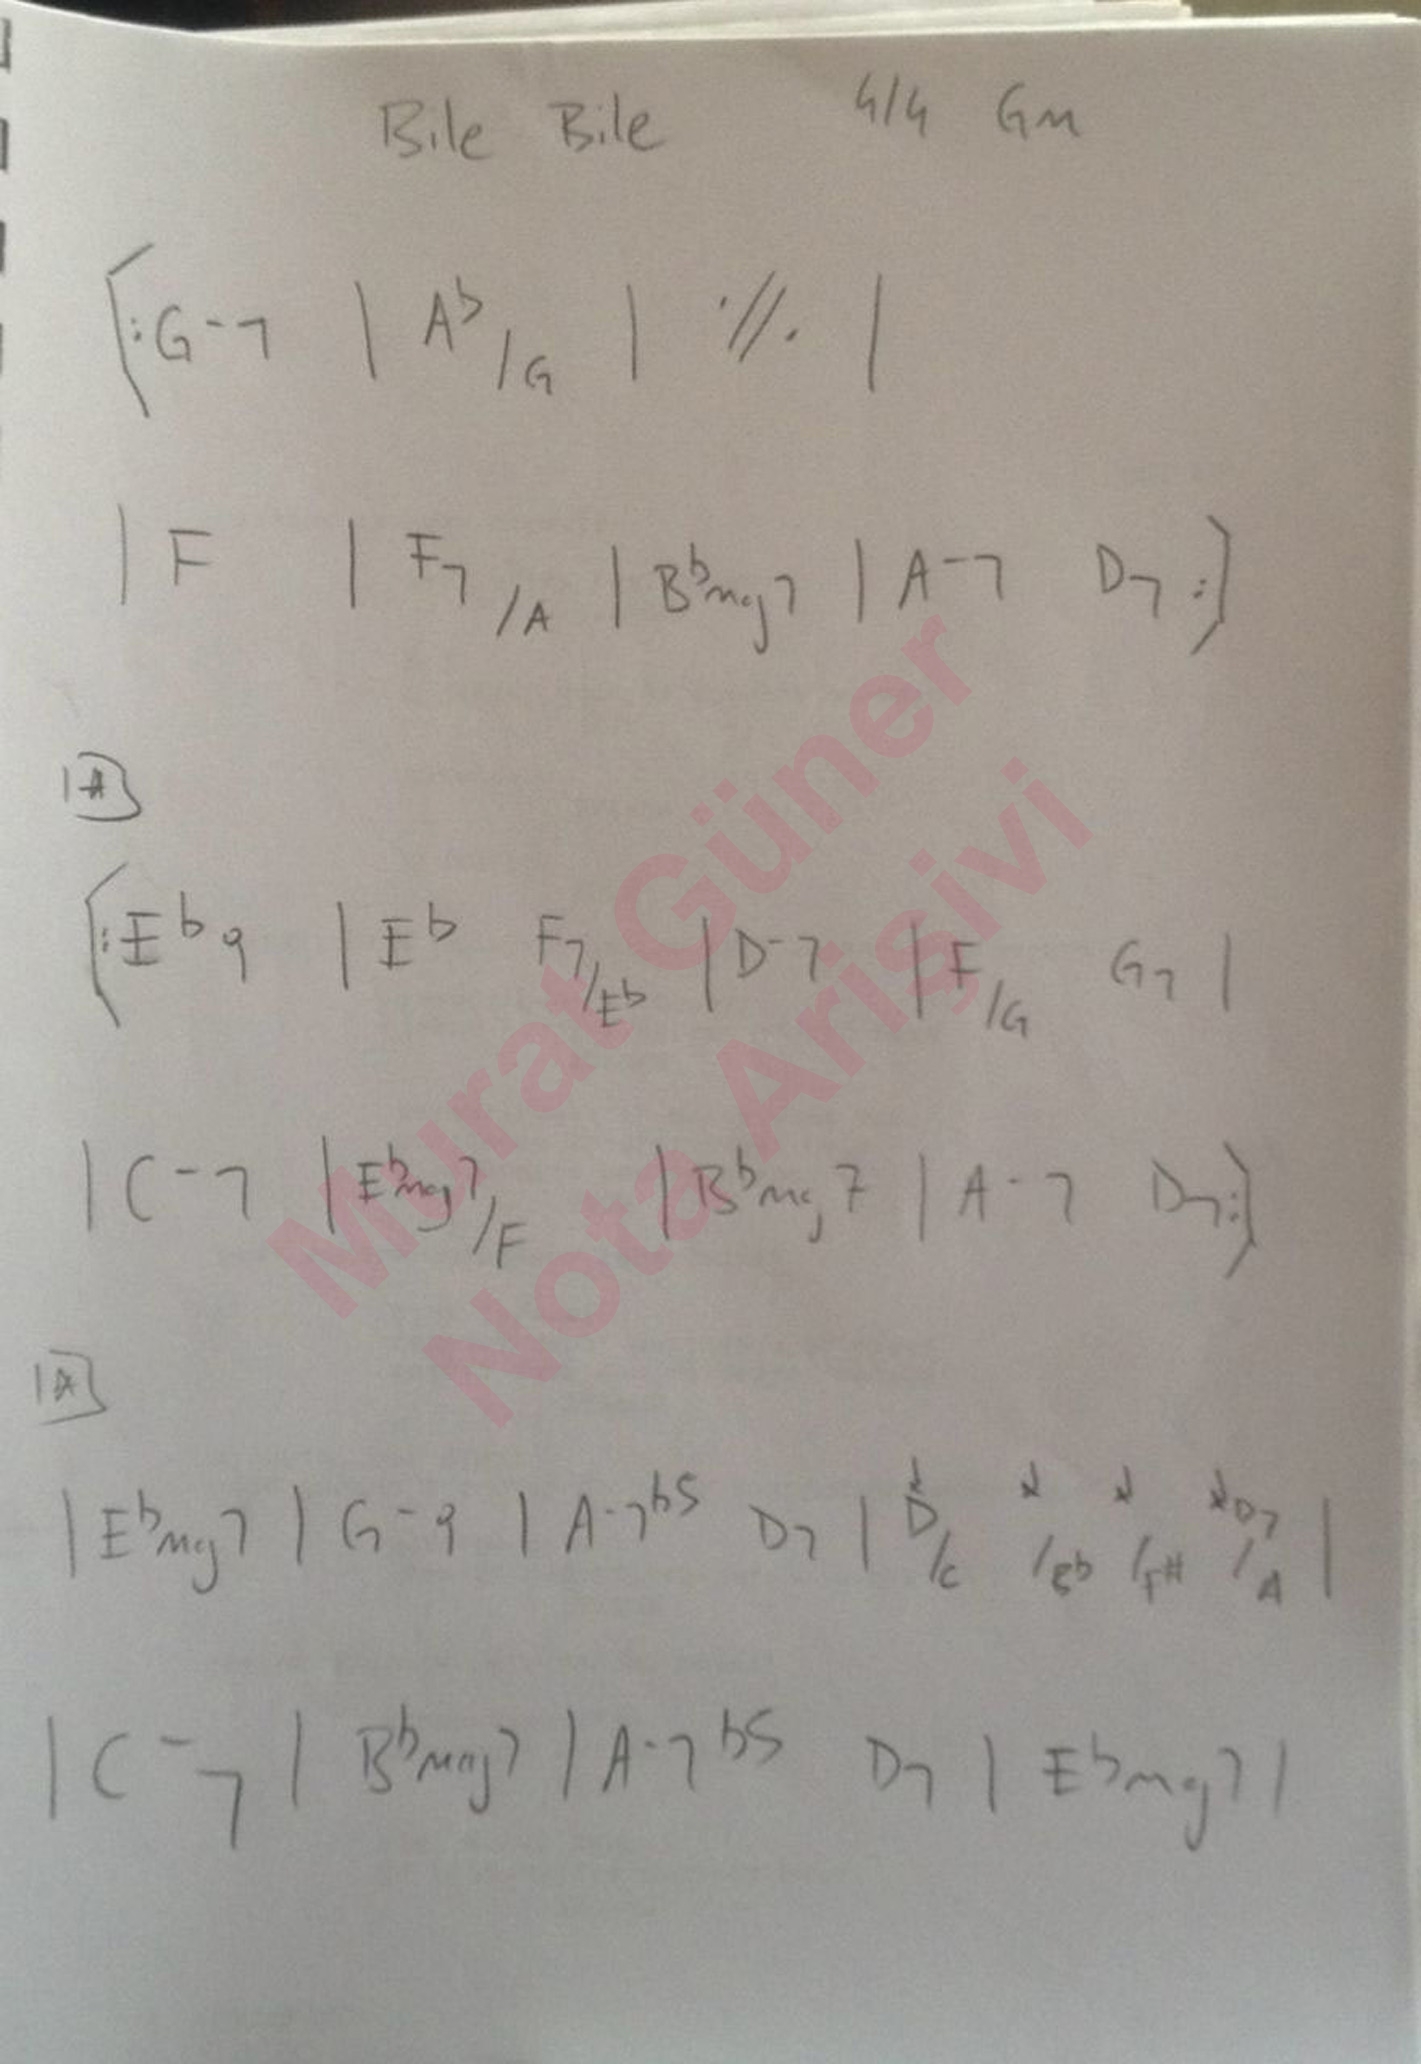 Bile Bile 4/4 Gm
[: G-7 | Ab/G | ·//· |
| F | F7/A | Bbmaj7 | A-7 D7 :]
|A|
[: Eb9 | Eb F7/Eb | D-7 | F/G G7 |
| C-7 | Ebmaj7/F | Bbmaj7 | A-7 D7 :]
|A|
| Ebmaj7 | G-9 | A-7b5 D7 | D/C /Bb /F# D7/A |
| C-7 | Bbmaj7 | A-7b5 D7 | Ebmaj7 |
Murat Güner
Nota Arişivi